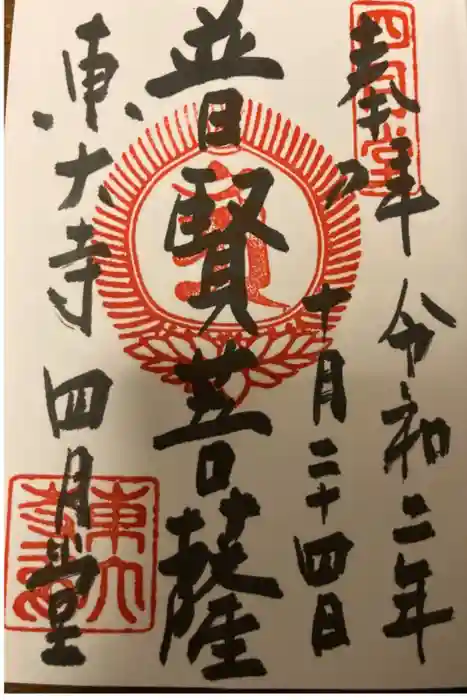 奉拝
令和二年
十月二十四日
普賢菩薩
東大寺 四月堂
四月堂